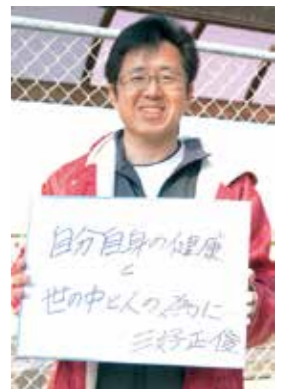 自分自身の健康
と
世の中と人の為に
三好正俊